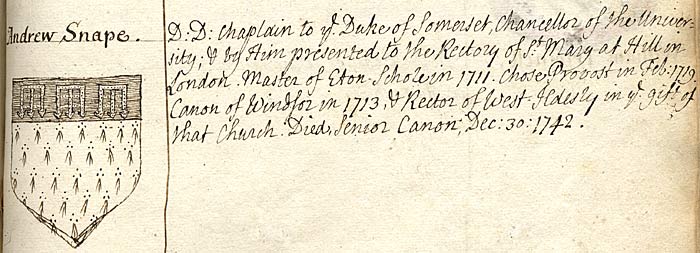 Andrew Snape.
D:D: Chaplain to yᵉ Duke of Somerset, Chancellor of the Univer-
sity; & by Him presented to the Rectory of Sᵗ Mary at Hill in
London. Master of Eton-Schole in 1711. chose Provost in Feb: 1719
Canon of Windsor in 1713. & Rector of West-Ildesly in yᵉ gift of
that Church. Died, Senior Canon, Dec: 30: 1742.